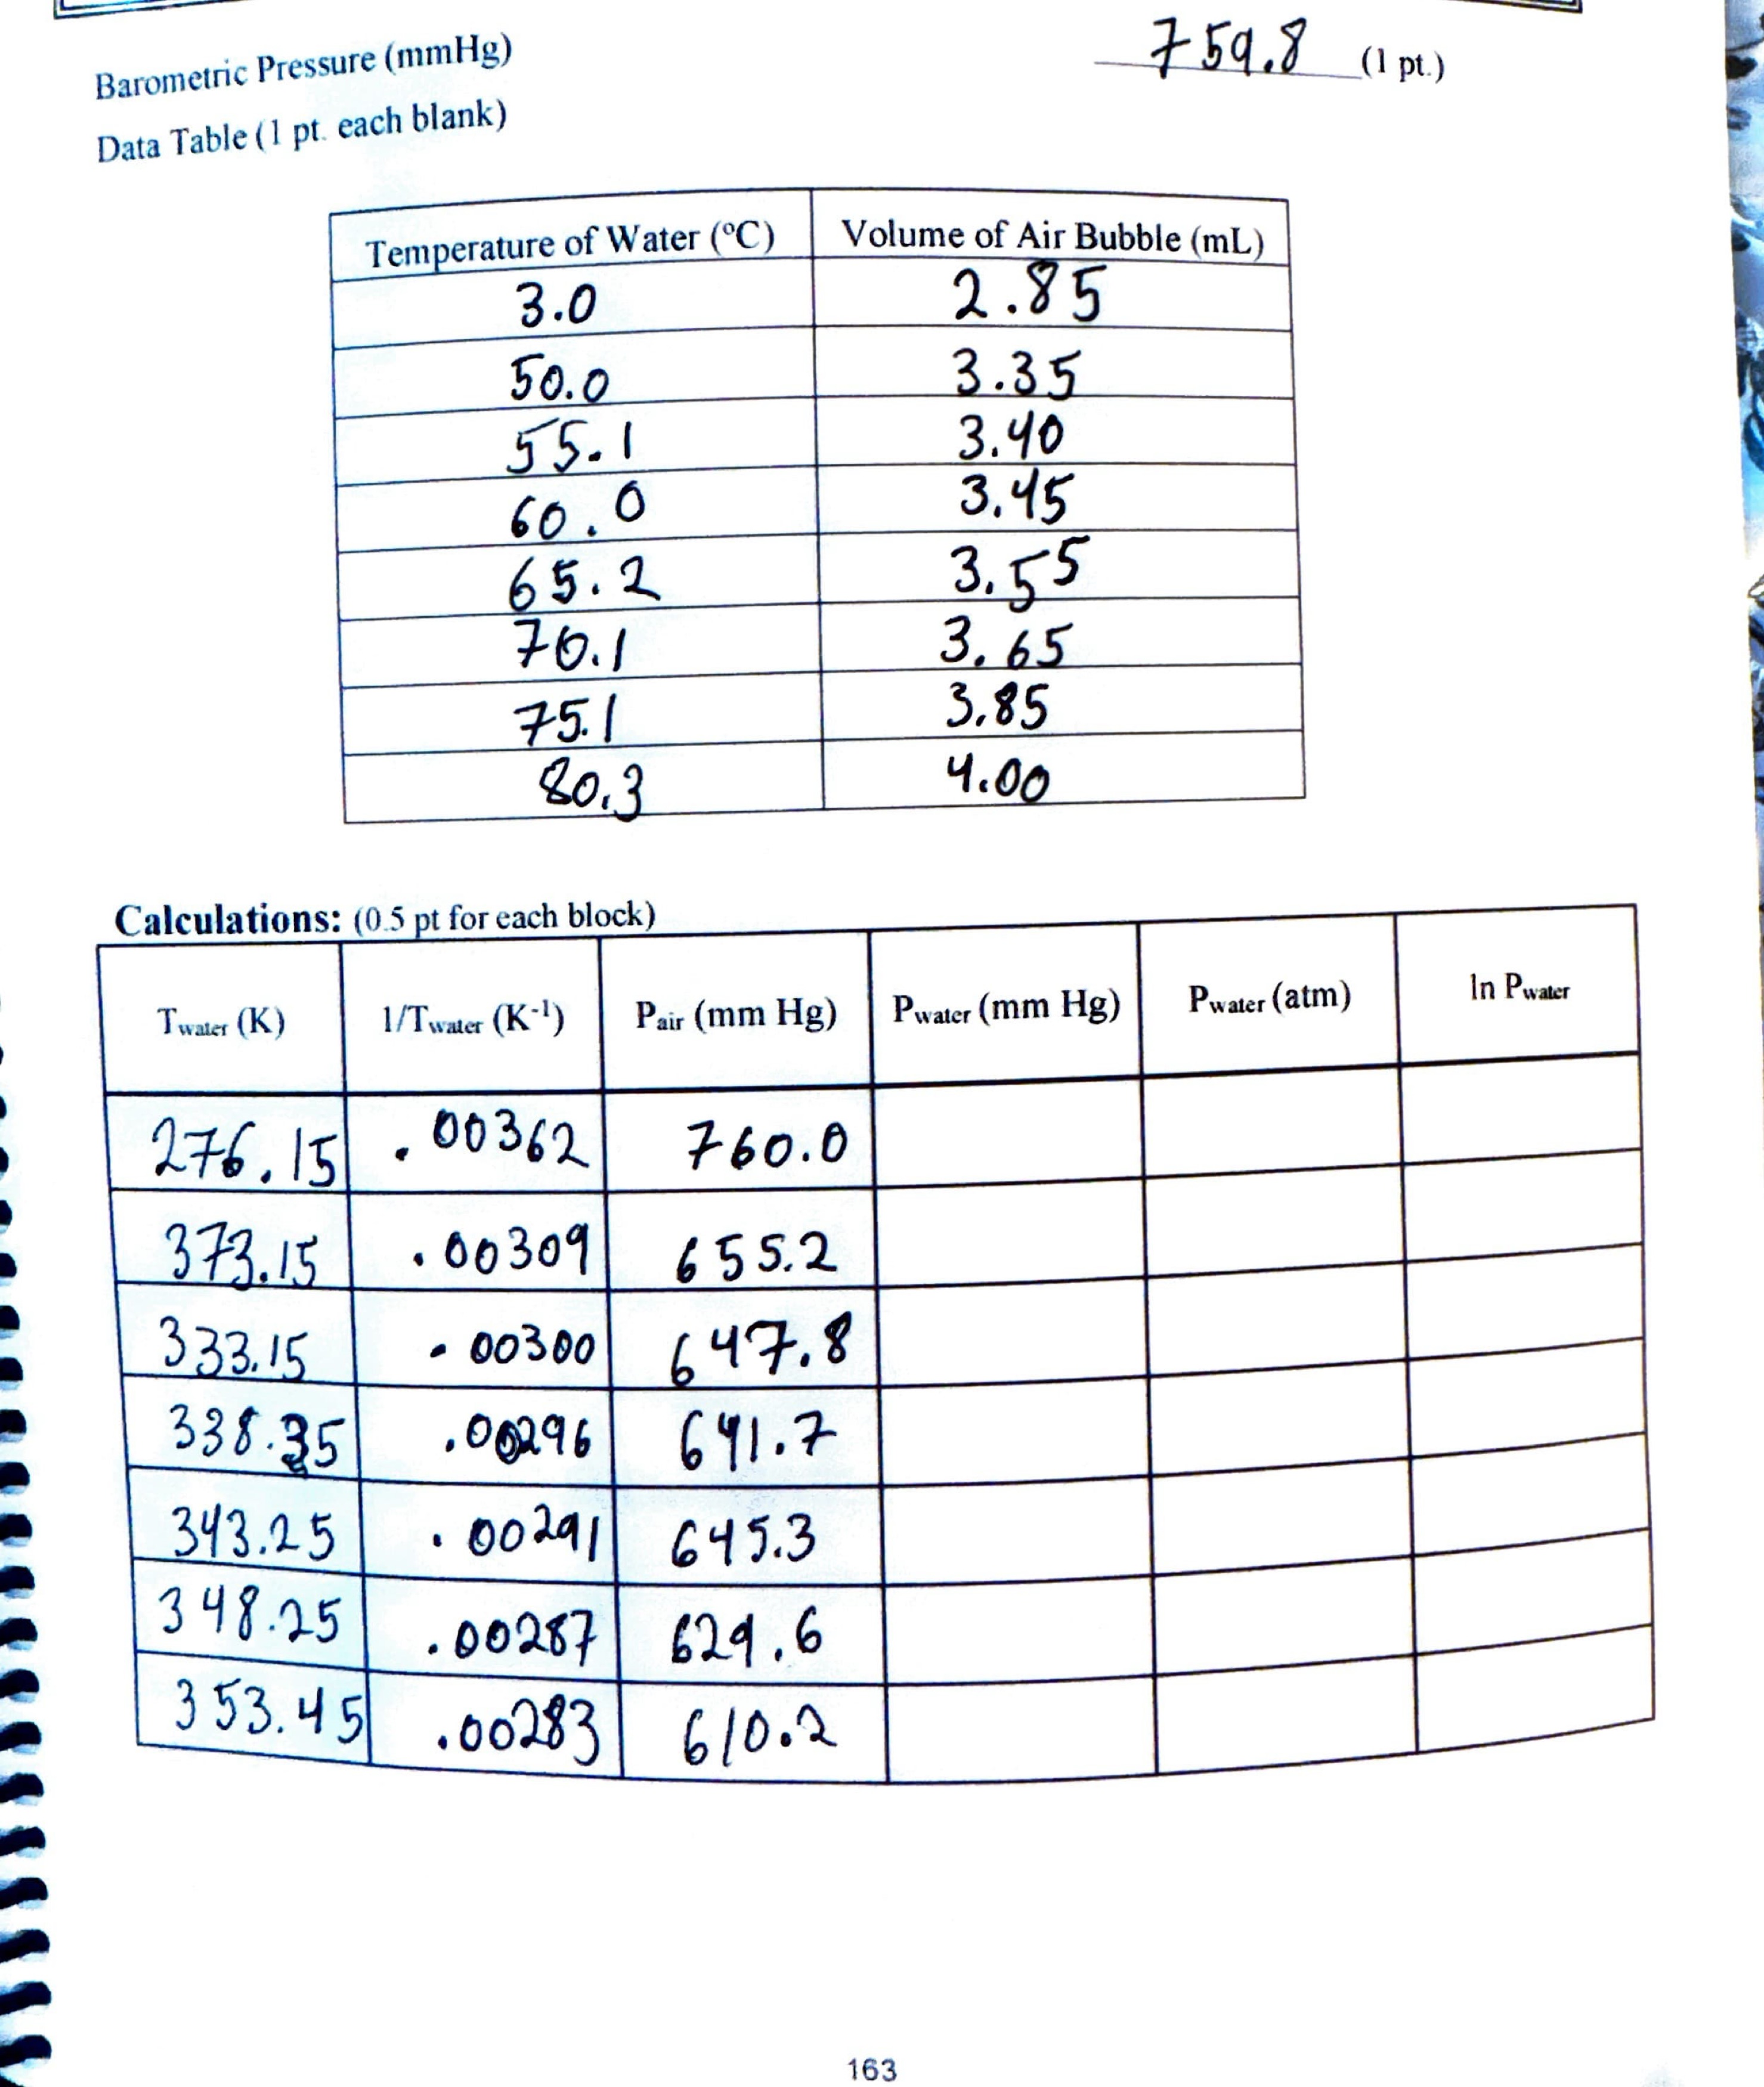 Barometric Pressure (mmHg) 759.8 (1 pt.)
Data Table (1 pt. each blank)
Temperature of Water (ºC) Volume of Air Bubble (mL)
3.0 2.85
50.0 3.35
55.1 3.40
60.0 3.45
65.2 3.55
70.1 3.65
75.1 3.85
80.3 4.00
Calculations: (0.5 pt for each block)
Twater (K) 1/Twater (K-1) Pair (mm Hg) Pwater (mm Hg) Pwater (atm) ln Pwater
276.15 .00362 760.0
373.15 .00309 655.2
333.15 .00300 647.8
338.35 .00296 641.7
343.25 .00291 645.3
348.25 .00287 629.6
353.45 .00283 610.2
163